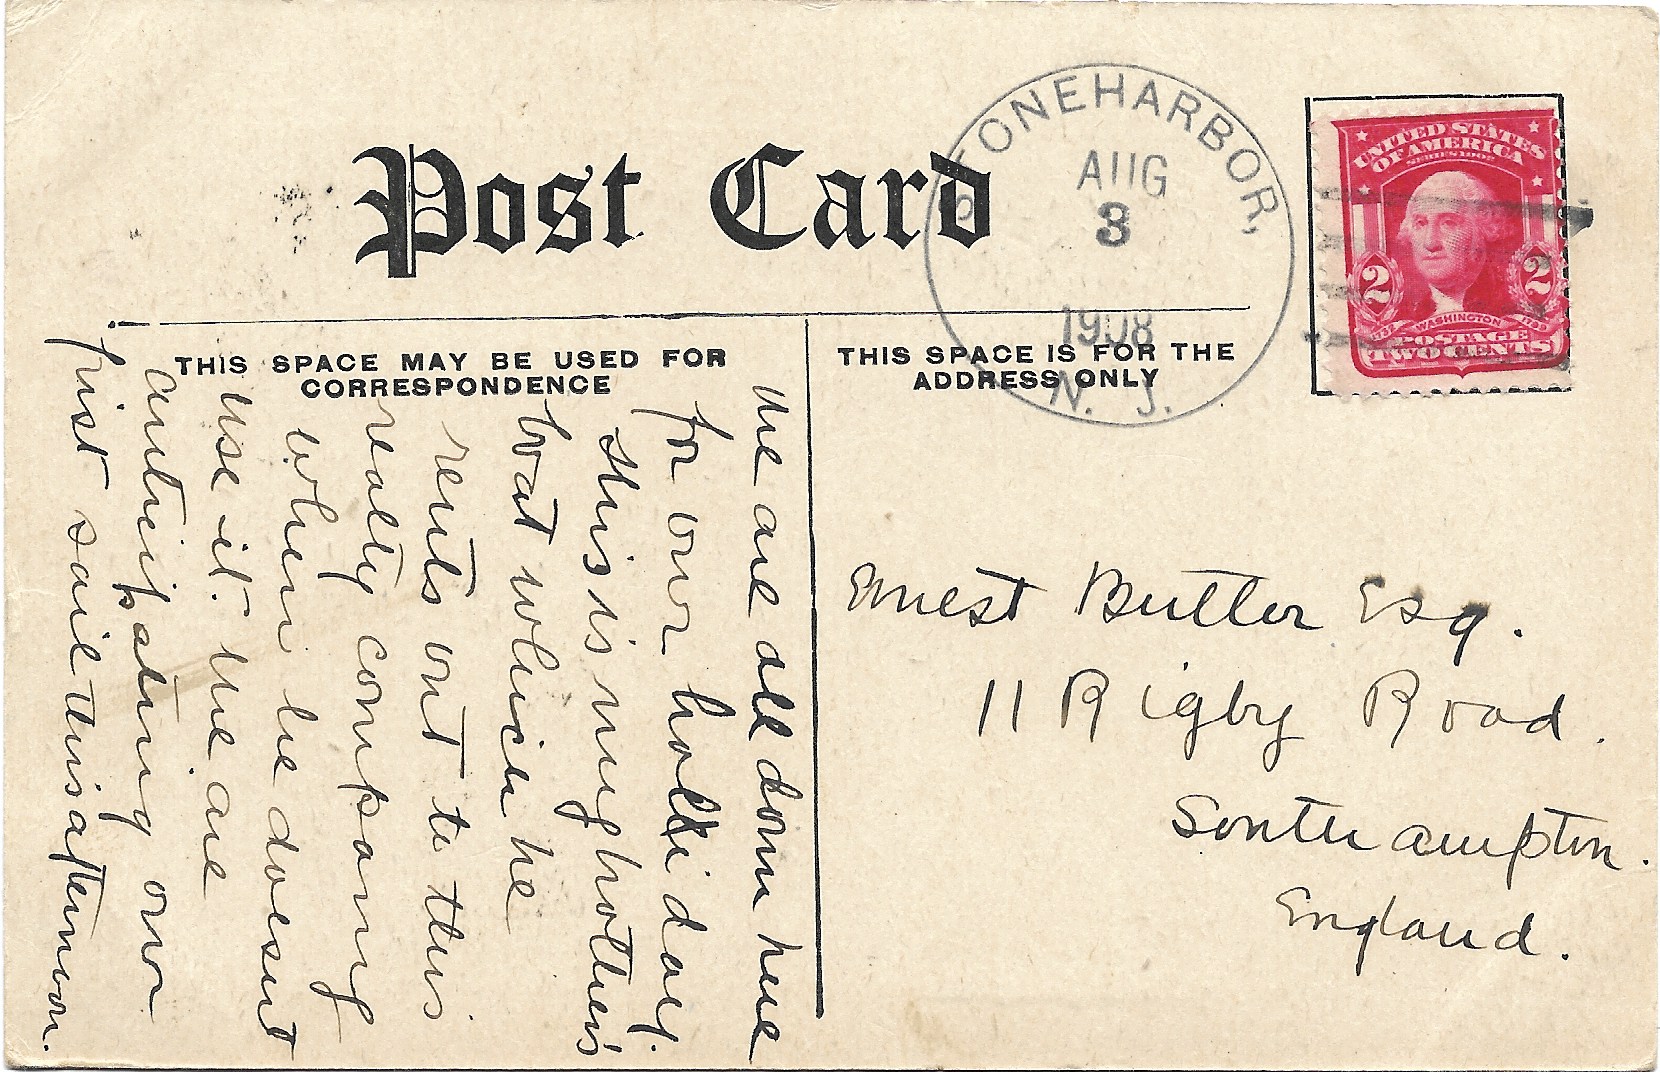 Post Card
STONEHARBOR,
AUG
3
1908
N. J.
UNITED STATES
OF AMERICA
SERIES 1902
2 2
1732 WASHINGTON 1799
POSTAGE
TWO CENTS
THIS SPACE MAY BE USED FOR
CORRESPONDENCE
THIS SPACE IS FOR THE
ADDRESS ONLY
We are all down here
for our holliday.
this is my brother's
boat which he
rents out to this
realty company
when he doesnt
use it. We are
anticipating our
first sail this afternoon.
Ernest Butler Esq.
11 Rigby Road.
Southampton.
England.